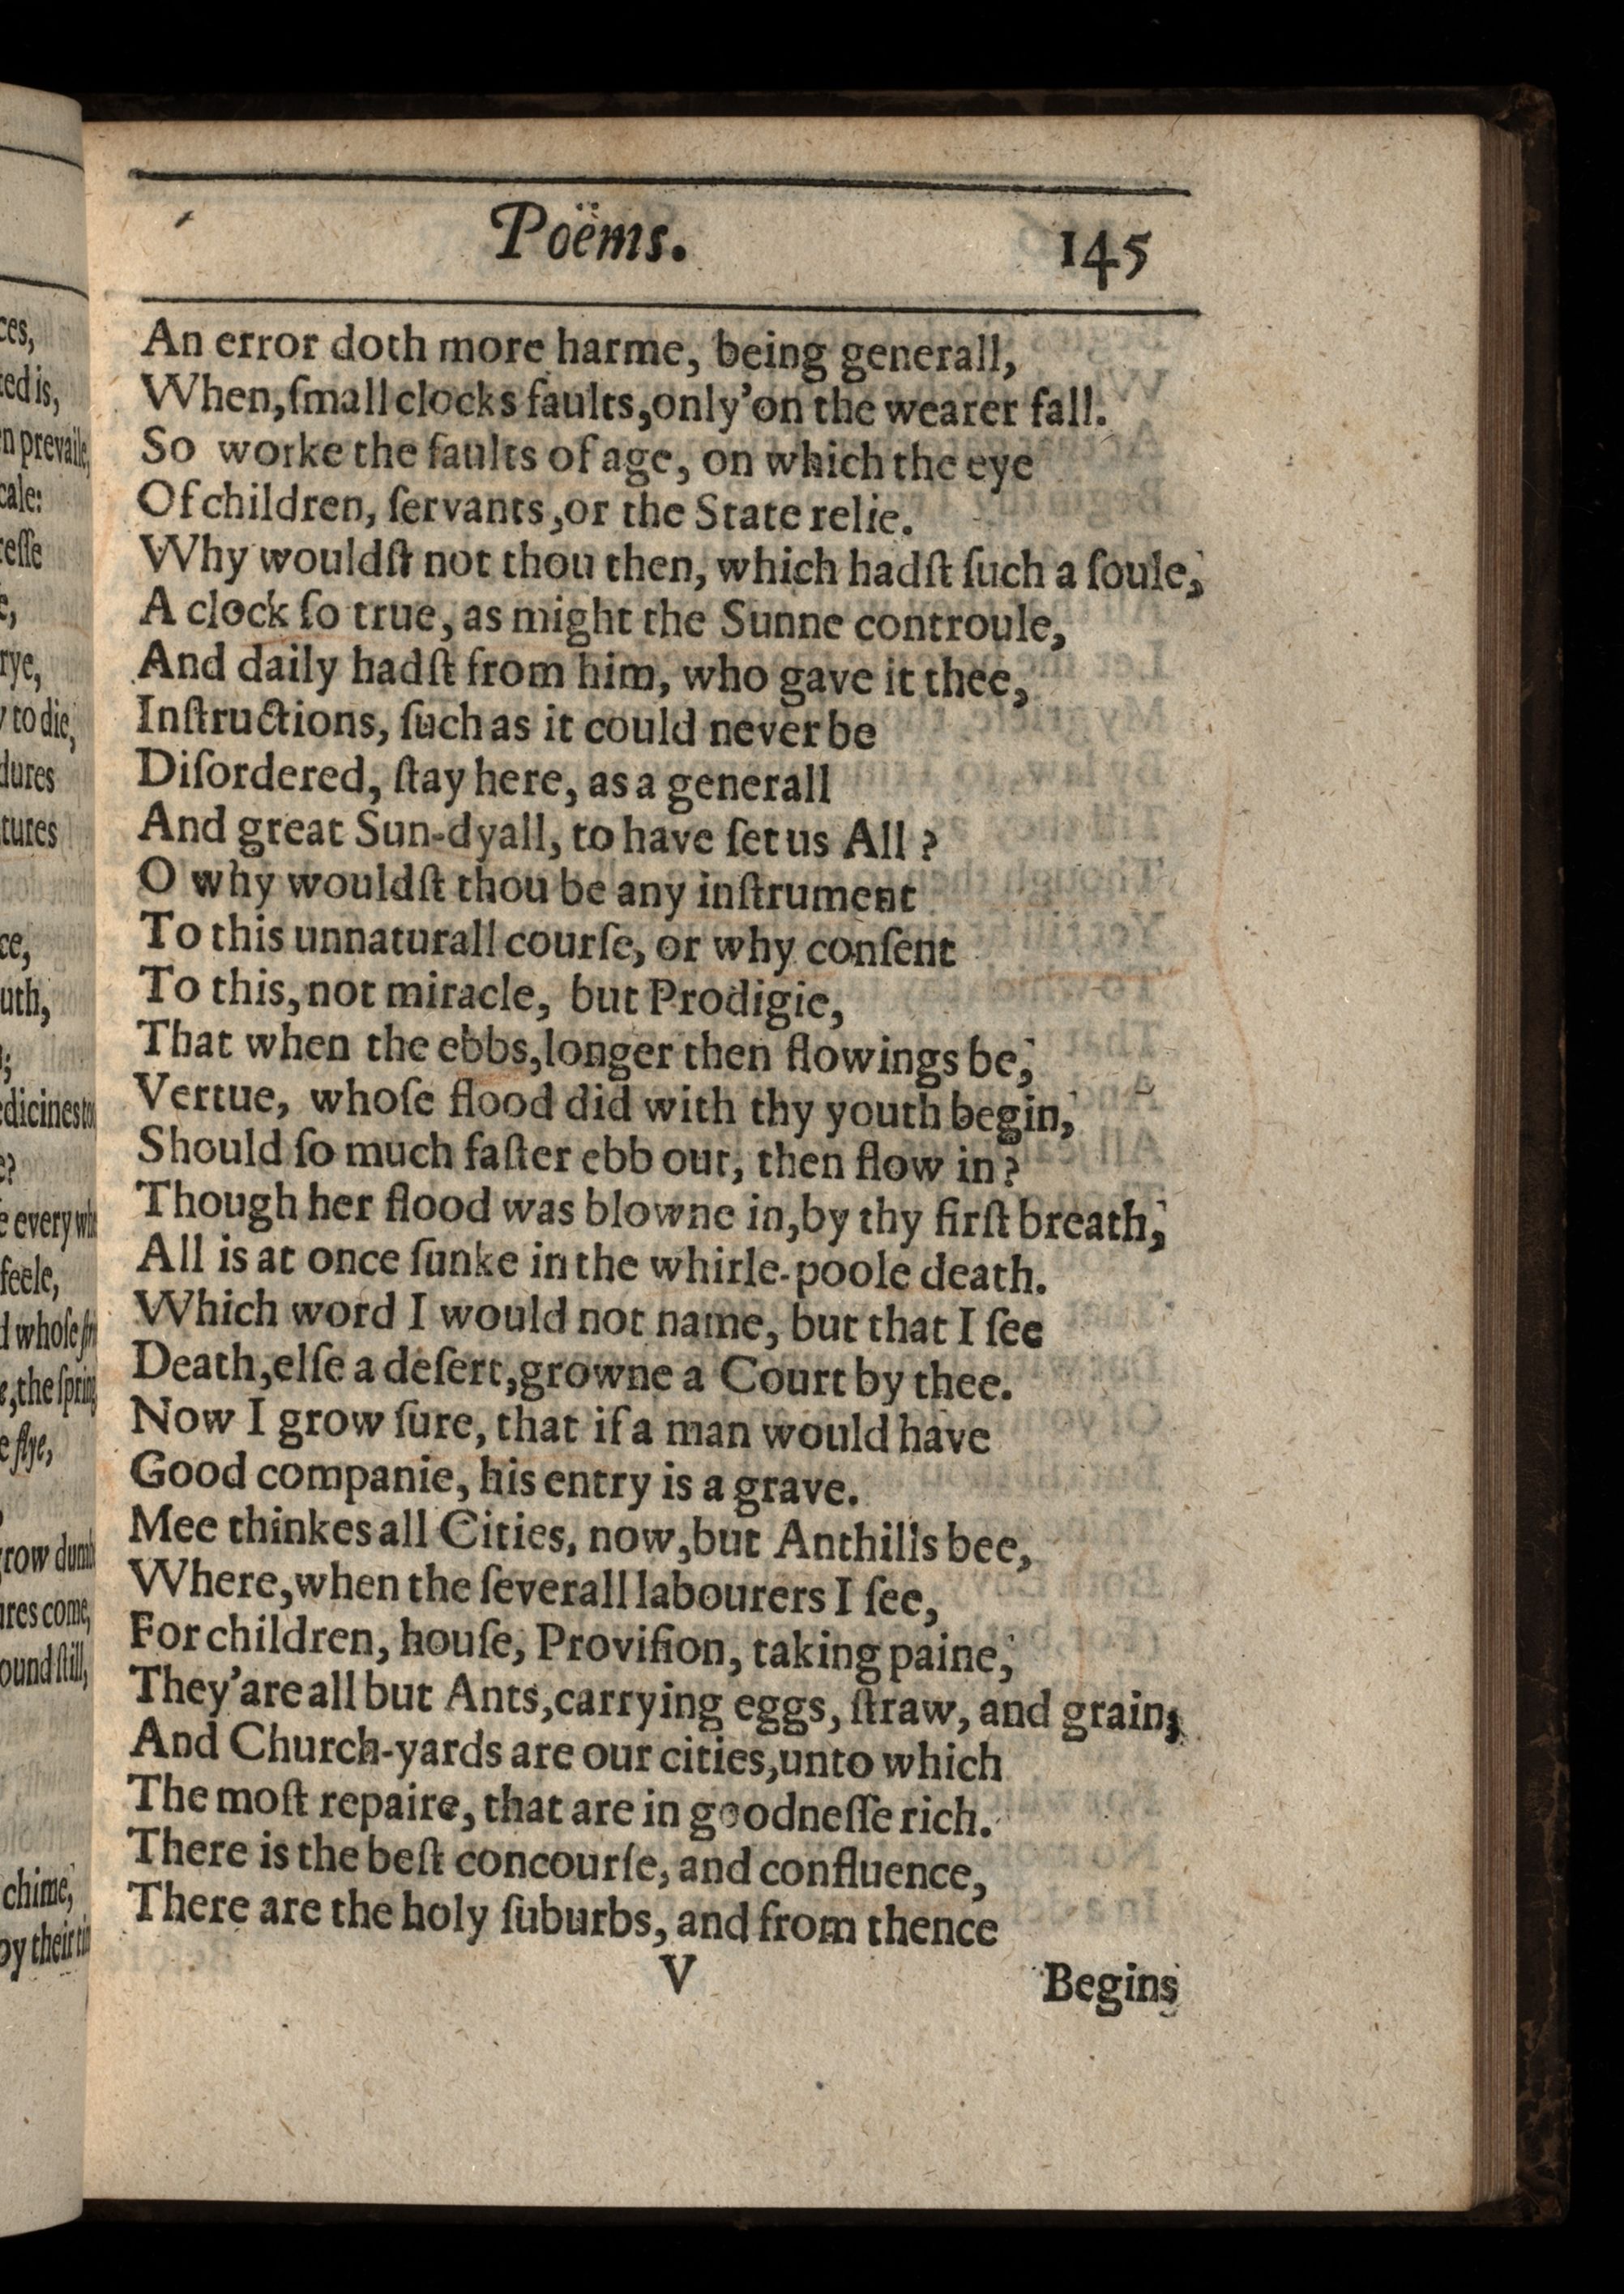 Poëms. 145
An error doth more harme, being generall,
When, ſmall clocks faults, only'on the wearer fall.
So worke the faults of age, on which the eye
Of children, ſervants, or the State relie.
Why wouldſt not thou then, which hadſt ſuch a ſoule,
A clock ſo true, as might the Sunne controule,
And daily hadſt from him, who gave it thee,
Inſtructions, ſuch as it could never be
Diſordered, ſtay here, as a generall
And great Sun-dyall, to have ſet us All?
O why wouldſt thou be any inſtrument
To this unnaturall courſe, or why conſent
To this, not miracle, but Prodigie,
That when the ebbs, longer then flowings be,
Vertue, whoſe flood did with thy youth begin,
Should ſo much faſter ebb out, then flow in?
Though her flood was blowne in, by thy firſt breath,
All is at once ſunke in the whirle-poole death.
Which word I would not name, but that I ſee
Death, elſe a deſert, growne a Court by thee.
Now I grow ſure, that if a man would have
Good companie, his entry is a grave.
Mee thinkes all Cities, now, but Anthills bee,
Where, when the ſeverall labourers I ſee,
For children, houſe, Proviſion, taking paine,
They'are all but Ants, carrying eggs, ſtraw, and grain;
And Church-yards are our cities, unto which
The moſt repaire, that are in goodneſſe rich.
There is the beſt concourſe, and confluence,
There are the holy ſuburbs, and from thence
V Begins